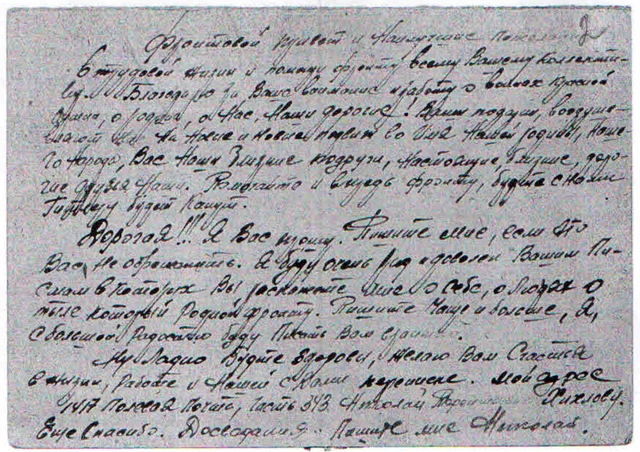 2
Фронтовой привет и наилучшие пожелания
в трудовой жизни и помощи фронту всему Вашему коллекти-
ву. Благодарю за Ваше внимание и заботу о воинах Красной
Армии, о родине, о Нас, Наши дорогие! Ваши подарки, воодуше-
вляют на Новые и новые подвиги во Имя Нашей родины, Наше-
го Народа, Вас Наши близкие подруги, Настоящие близкие, доро-
гие друзья Наши. Работайте и впредь фронту, будьте с нами
Гитлеру будет капут.
Дорогая!!! Я Вас прошу. Пишите мне, если это
Вас не обременит. Я буду очень рад и доволен Вашим Пи-
сьмом в которых Вы расскажете мне о себе, о людях о
тыле который Родной фронту. Пишите Чаще и больше, Я,
с большой Радостью буду Писать Вам
Ну Ладно Будте Здоровы, желаю Вам Счастья
в жизни, работе и Нашей с Вами переписке. Мой адрес
1417 Полевая Почта, часть 343. Николай
Еще Спасибо. Досвидания. Пишите мне Николай.